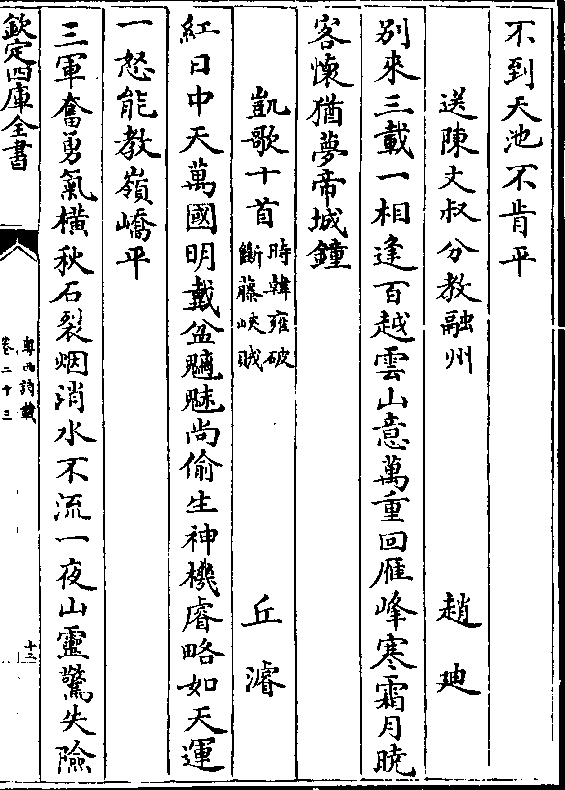 不到天池不肯平
送陳文叔分教融州 趙迪
別來三載一相逢百越雲山意萬重回雁峰寒霜月曉
客懷猶夢帝城鐘
凱歌十首 時韓雍破
斷藤峽賊 丘濬
紅日中天萬國明戴盆魑魅尚偷生神機睿略如天運
一怒能教嶺嶠平
三軍奮勇氣橫秋石裂烟消水不流一夜山靈驚失險
欽定四庫全書
粵西詩載
卷二十三
十三